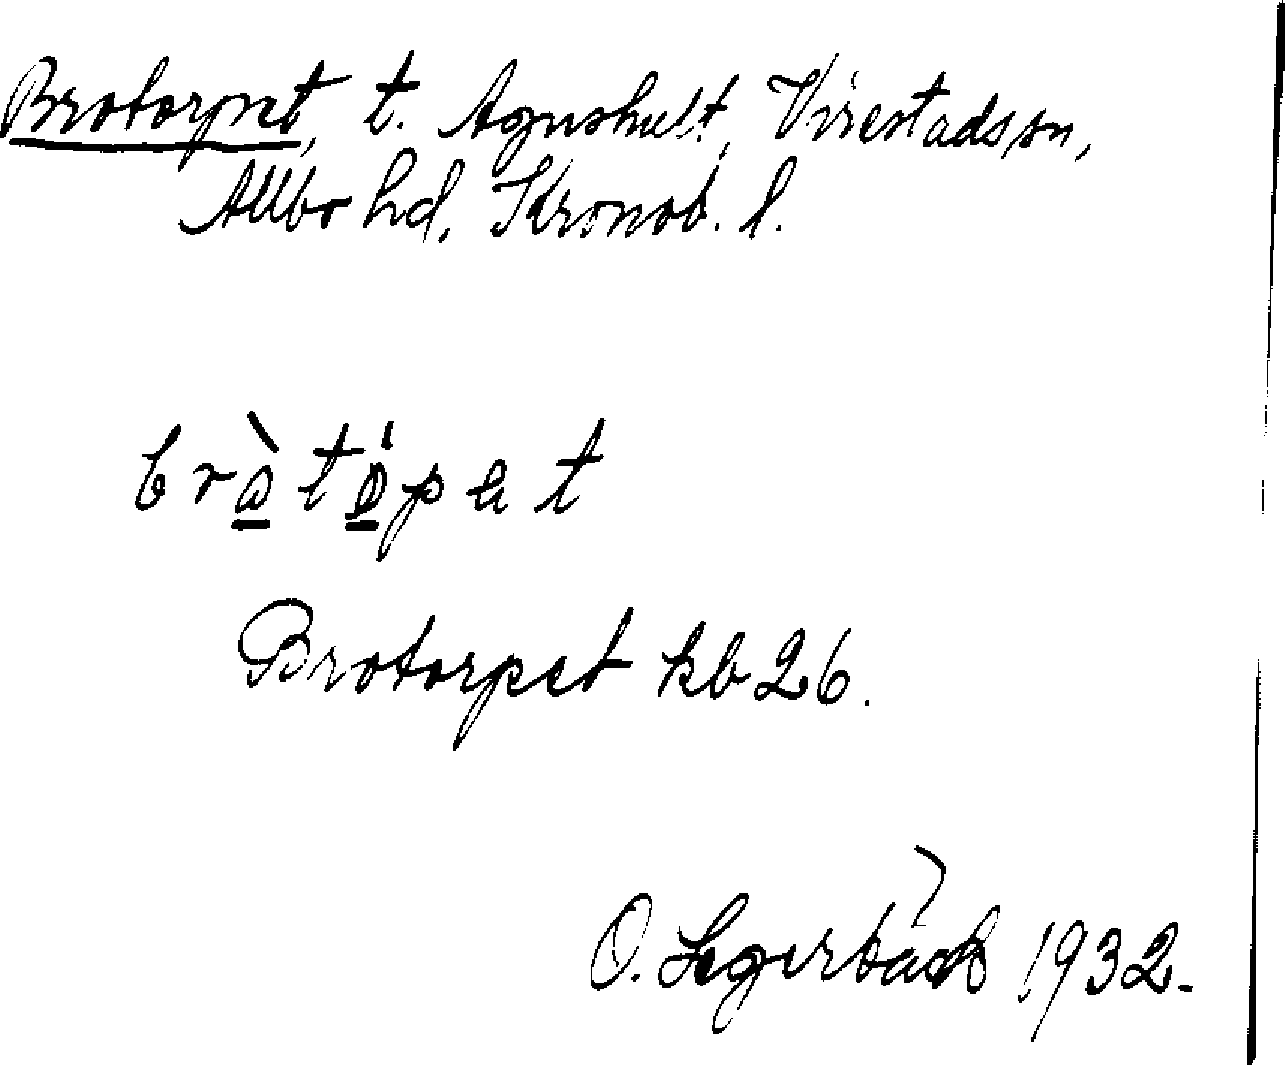 Brotorpet, t. Agnshult, Virestads sn,
Allbo hd, Kronob. l.
Brotorpet kb 26.
O. Segerbäck 1932.